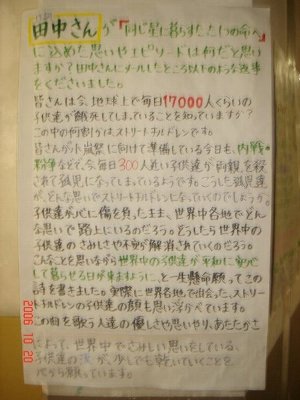 田中さんが「同じ星に暮らすたった1つの命へ」
に込めた思いやエピソードは何だと思い
ますか？田中さんにメールしたところ以下のような返事
をくださいました。
皆さんは今、地球上で毎日17000人くらいの
子供達が餓死してしまっていることを知っていますか？
この中の何割かは、ストリートチルドレンです。
皆さんが木風祭に向けて準備している今日も、内戦や
紛争などで、今、毎日300人近い子供が両親を殺
されて孤児になってしまっているようです。こうした孤児達
が、どんな思いでストリートチルドレンになっていくのでしょうか。
子供達が心に傷を負ったまま、世界中各地でどん
な思いで路上にいるのだろう。どうしたら世界中の
子供達のさみしさや不安が解消されていくのだろう。
こんなことを思いながら世界中の子供達が平和に安心し
て暮らせる日が来ますように、と一生懸命願ってこの
詩を書きました。実際に世界各地で出会った、ストリー
トチルドレンの子供達の顔も思い浮かべています。
この曲を歌う人達の優しさや思いやり、あたたかさ
によって、世界中でさみしい思いをしている、
子供達の涙が、少しでも乾いていくことを
心から願っています。
2006 10 20